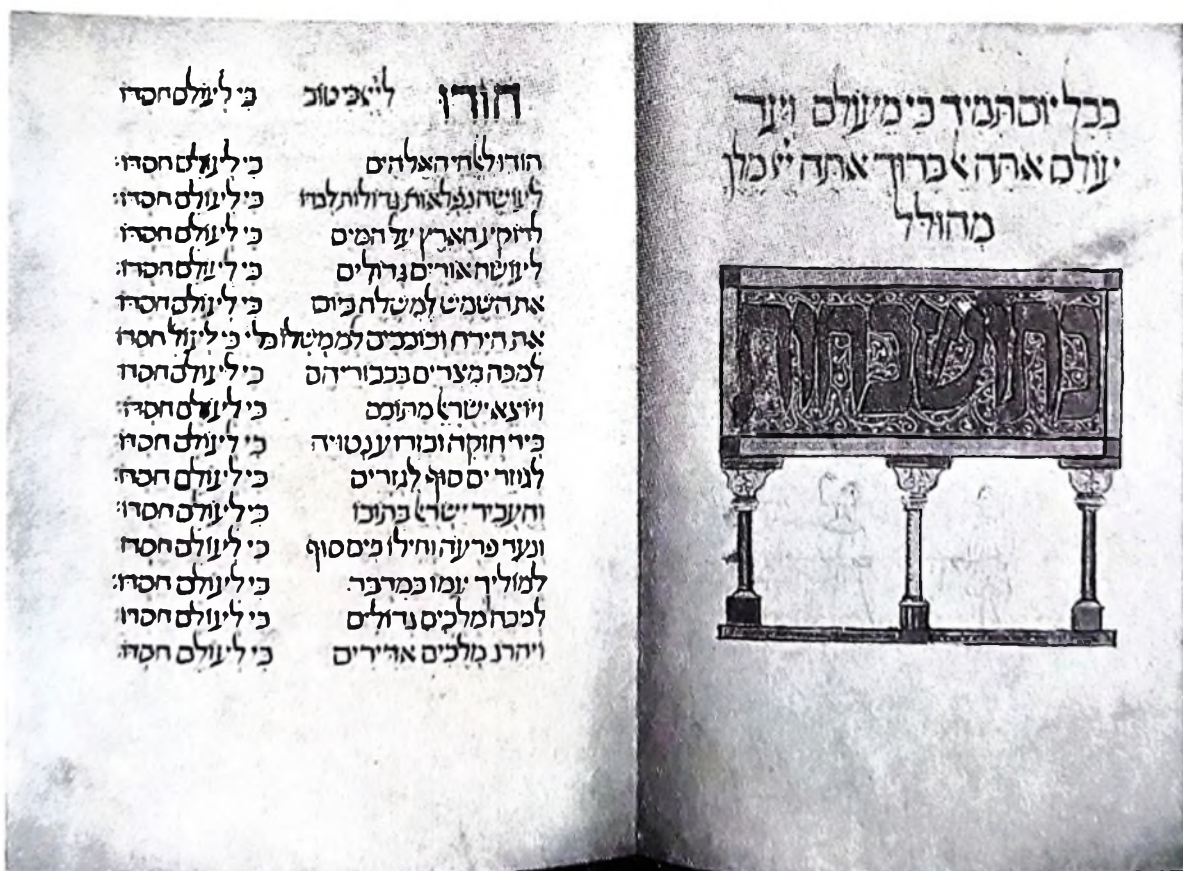 בכל יום תמיד כי מעולם ועד
עולם אתה אל ברוך אתה ייי מלך
מהולל
בתושבחות
הודו לייי כי טוב כי לעולם חסדו
הודו לאלהי האלהים כי לעולם חסדו:
לעושה נפלאות גדולות לבדו כי לעולם חסדו:
לרוקע הארץ על המים כי לעולם חסדו:
לעושה אורים גדולים כי לעולם חסדו:
את השמש למשלת ביום כי לעולם חסדו:
את הירח וכוכבים לממשלות בלי כי לעול חסדו
למכה מצרים בבכוריהם כי לעולם חסדו:
ויוצא ישראל מתוכם כי לעולם חסדו:
ביד חזקה ובזרוע נטויה כי לעולם חסדו:
לגוזר ים סוף לגזרים כי לעולם חסדו:
והעביר ישראל בתוכו כי לעולם חסדו:
ונער פרעה וחילו בים סוף כי לעולם חסדו
למוליך עמו במדבר כי לעולם חסדו:
למכה מלכים גדולים כי לעולם חסדו:
ויהרג מלכים אדירים כי לעולם חסדו: